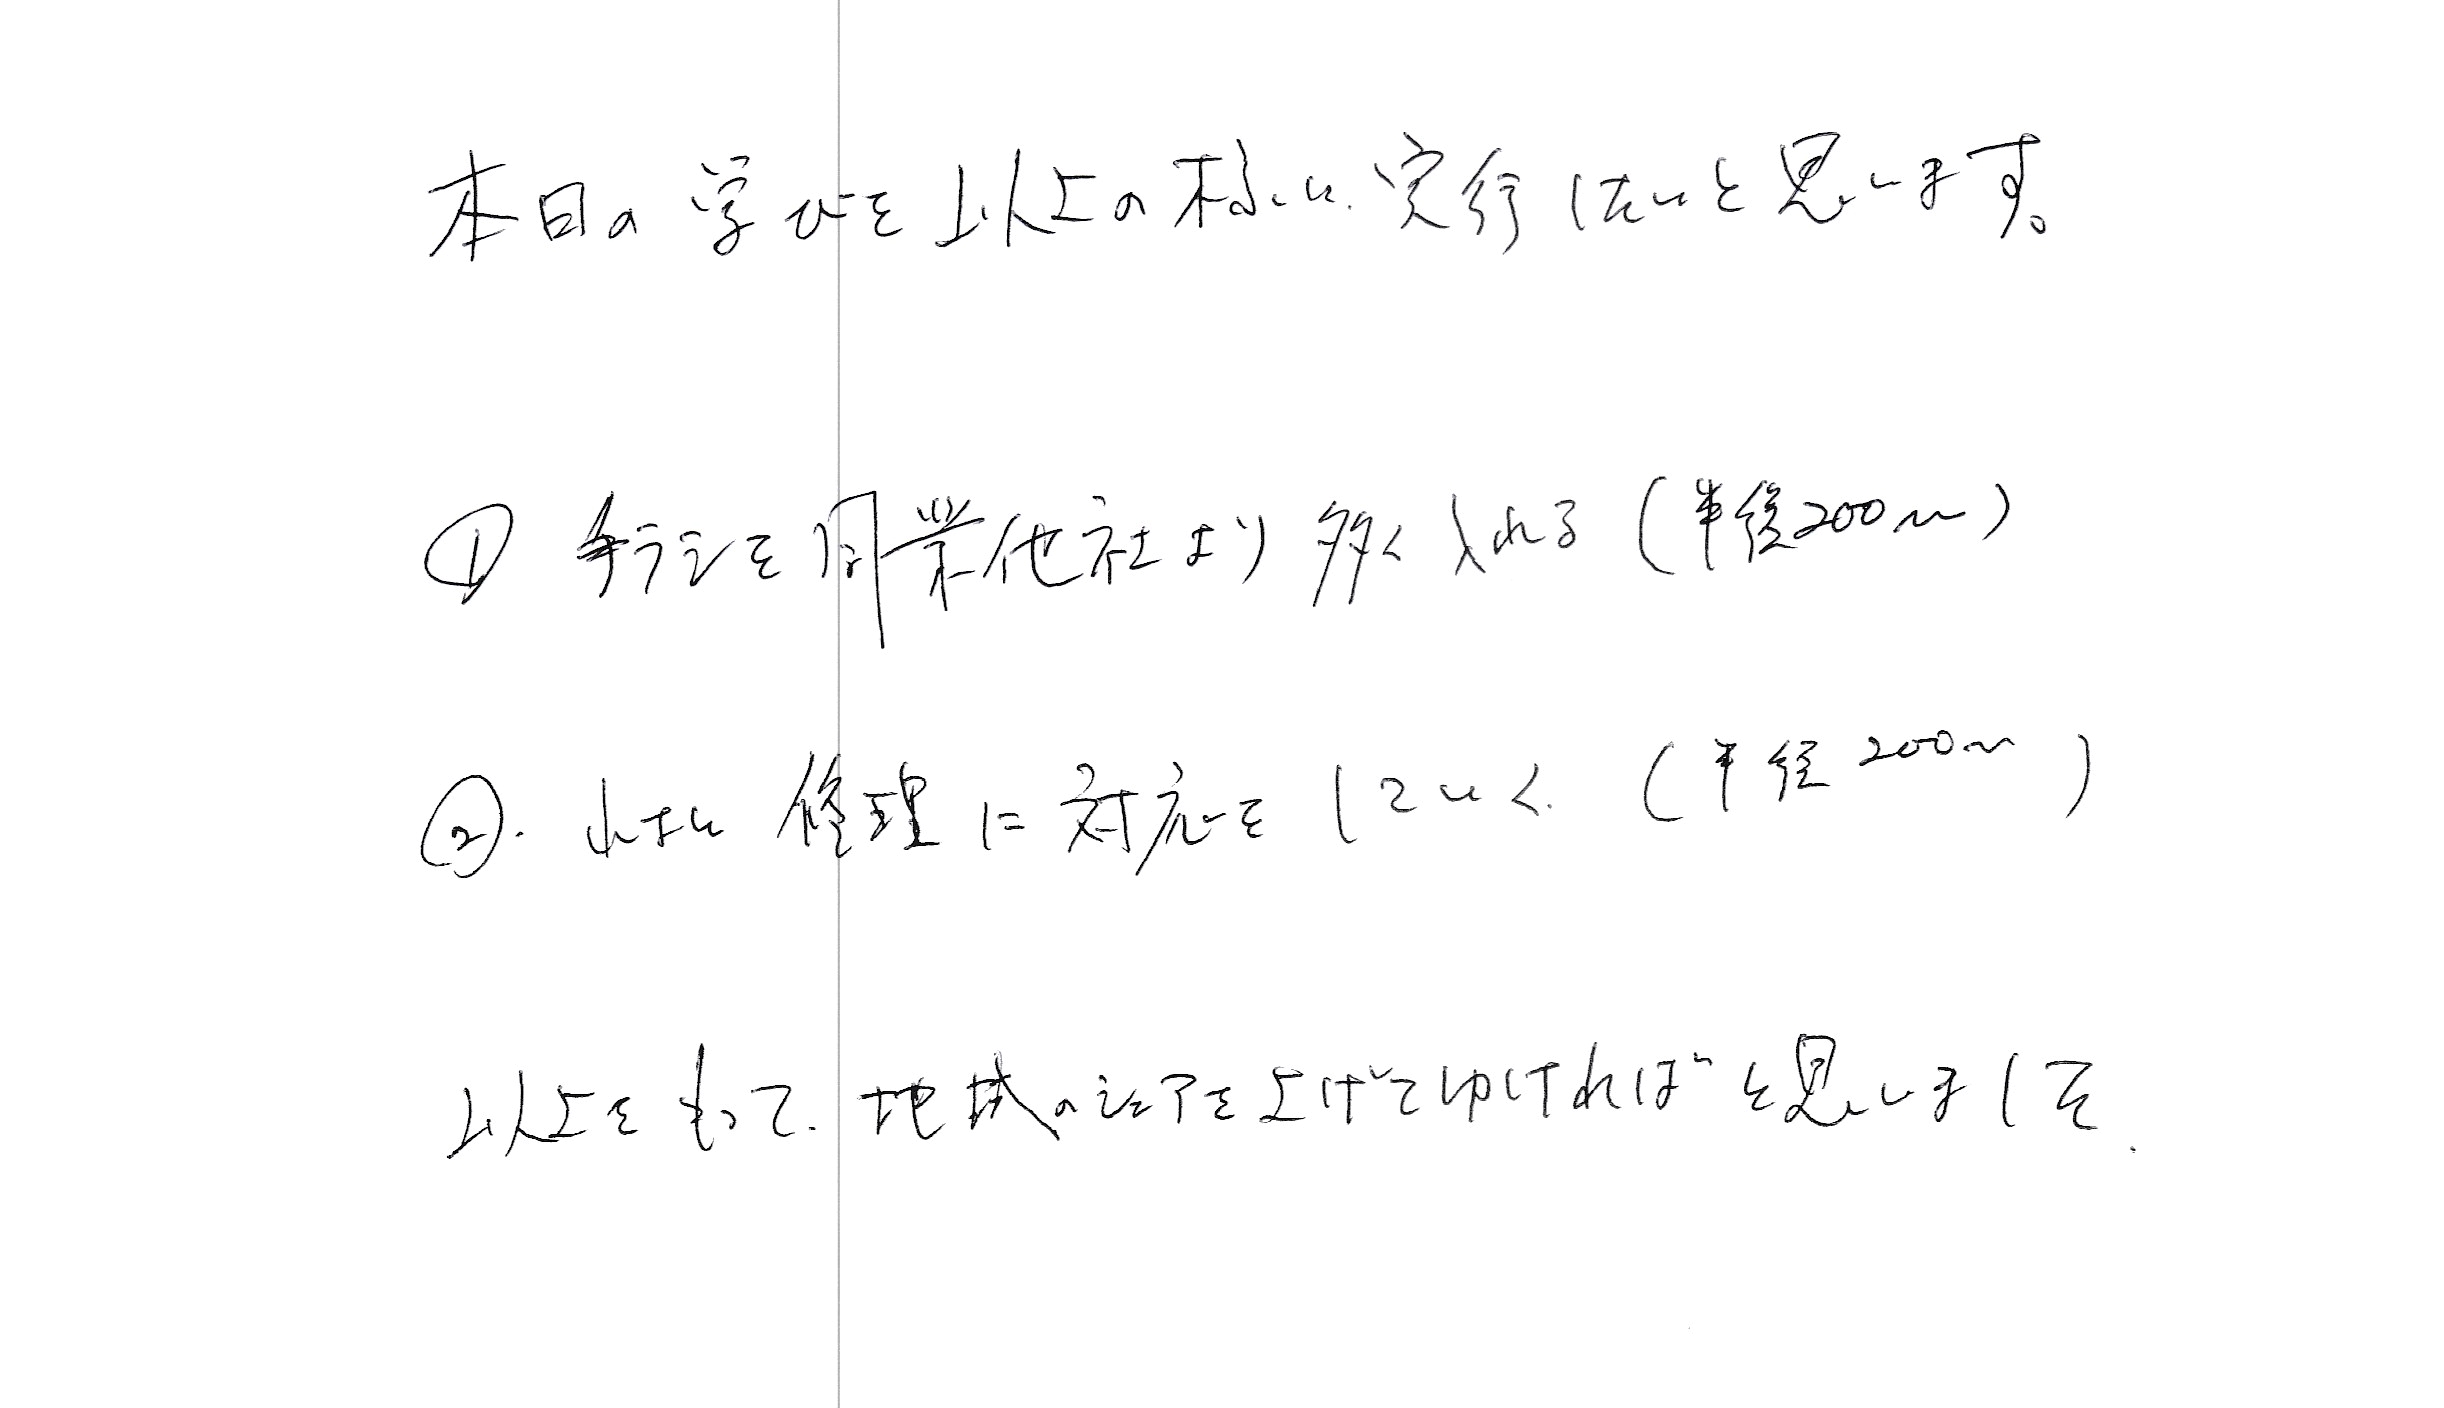 本日の学びを以上の様に実行したいと思います。
① チラシを同業他社より多く入れる(半径200m)
②. 修理に対応をしていく.(半径200m)
以上をもって.地域のシェアを上げてゆければと思いました.